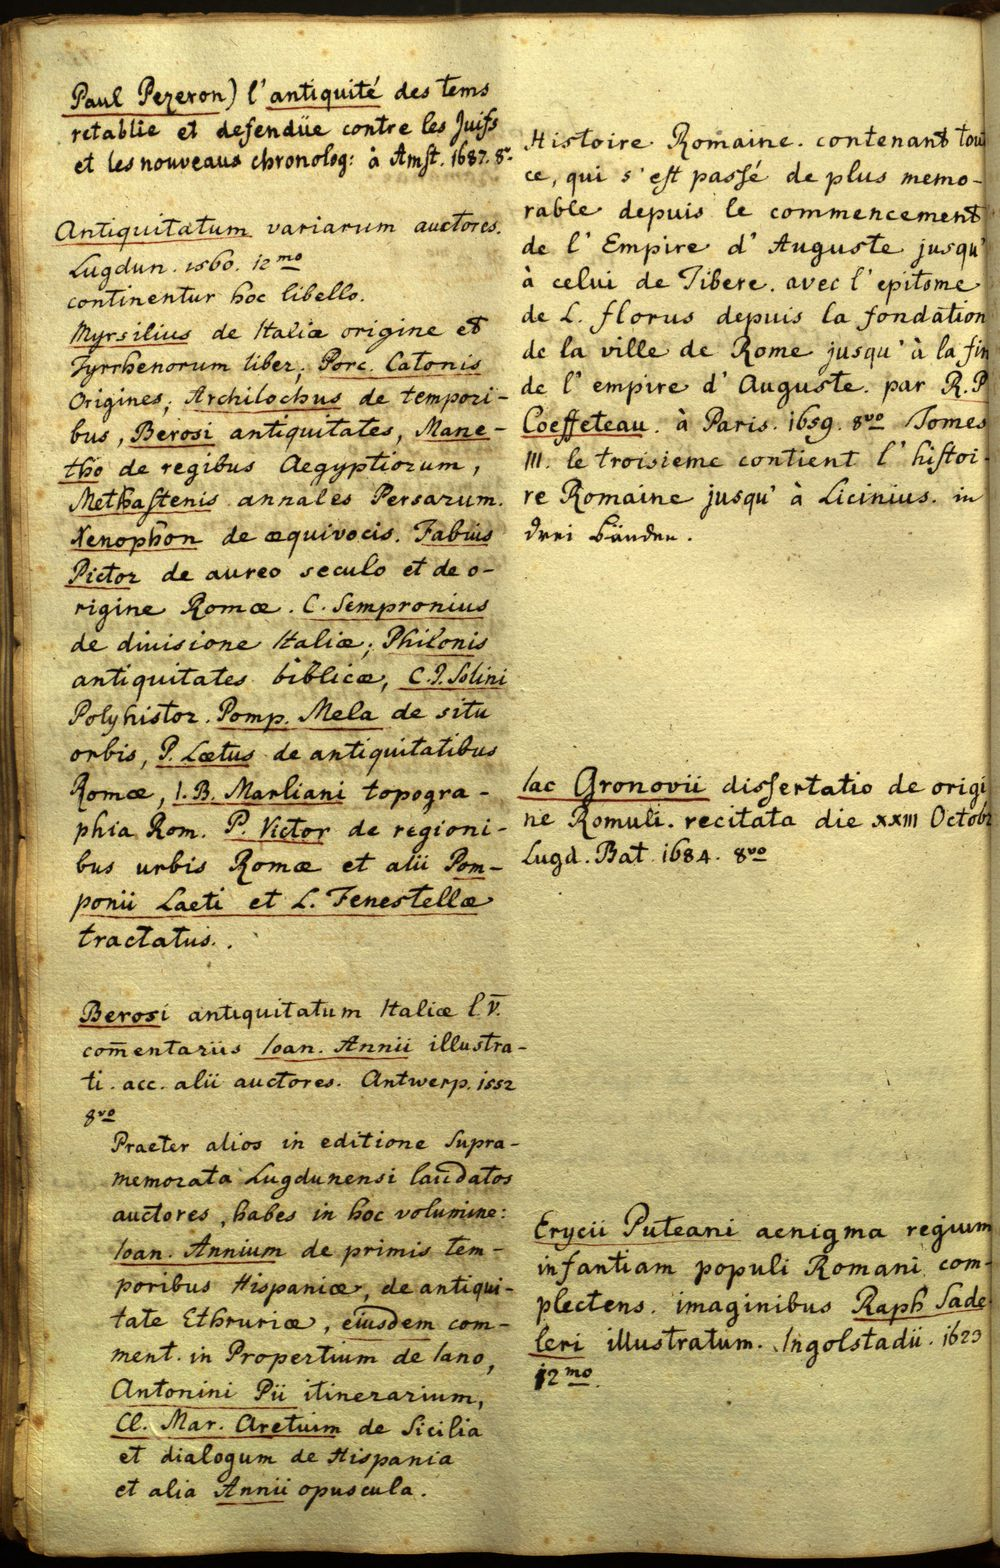 Paul Pezeron) l'antiquité des tems
retablie et defendüe contre les Juifs
et les nouveaus chronolog: à Amst. 1687. 8º.
Antiquitatum variarum auctores.
Lugdun. 1560. 12mo
continentur hoc libello.
Myrsilius de Italiæ origine et
Tyrrhenorum liber; Porc. Catonis
Origines; Archilochus de tempori-
bus, Berosi antiquitates, Mane-
tho de regibus Aegyptiorum,
Methastenis annales Persarum.
Xenophon de æquivocis. Fabius
Pictor de aureo seculo et de o-
rigine Romæ. C. Sempronius
de diuisione Italiæ; Philonis
antiquitates biblicæ, C. J. Solini
Polyhistor. Pomp. Mela de situ
orbis, P. Lætus de antiquitatibus
Romæ, I. B. Marliani topogra-
phia Rom. P. Victor de regioni-
bus urbis Romæ et alii Pom-
ponii Laeti et L. Fenestellæ
tractatus.
Berosi antiquitatum Italiæ l. V.
com̄entariis Ioan. Annii illustra-
ti. acc. alii auctores. Antwerp. 1552
8vo
Praeter alios in editione supra-
memorata Lugdunensi laudatos
auctores, habes in hoc volumine:
Ioan. Annium de primis tem-
poribus Hispaniæ, de antiqui-
tate Ethruriæ, eiusdem com-
ment. in Propertium de Iano,
Antonini Pii itinerarium,
Cl. Mar. Aretium de Sicilia
et dialogum de Hispania
et alia Annii opuscula.
Histoire Romaine. contenant tout
ce, qui s'est passé de plus memo-
rable depuis le commencement
de l'Empire d'Auguste jusqu'
à celui de Tibere. avec l'epitome
de L. florus depuis la fondation
de la ville de Rome jusqu'à la fin
de l'empire d'Auguste. par R. P
Coeffeteau. à Paris. 1659. 8vo Tomes
III. le troisieme contient l'histoi-
re Romaine jusqu'à Licinius. in
drei Bänden.
Iac Gronovii dissertatio de origi
ne Romuli. recitata die XXIII Octobr
Lugd. Bat. 1684. 8vo
Erycii Puteani aenigma regium
infantiam populi Romani com-
plectens. imaginibus Raph Sade
leri illustratum. Ingolstadii. 1623
12mo.